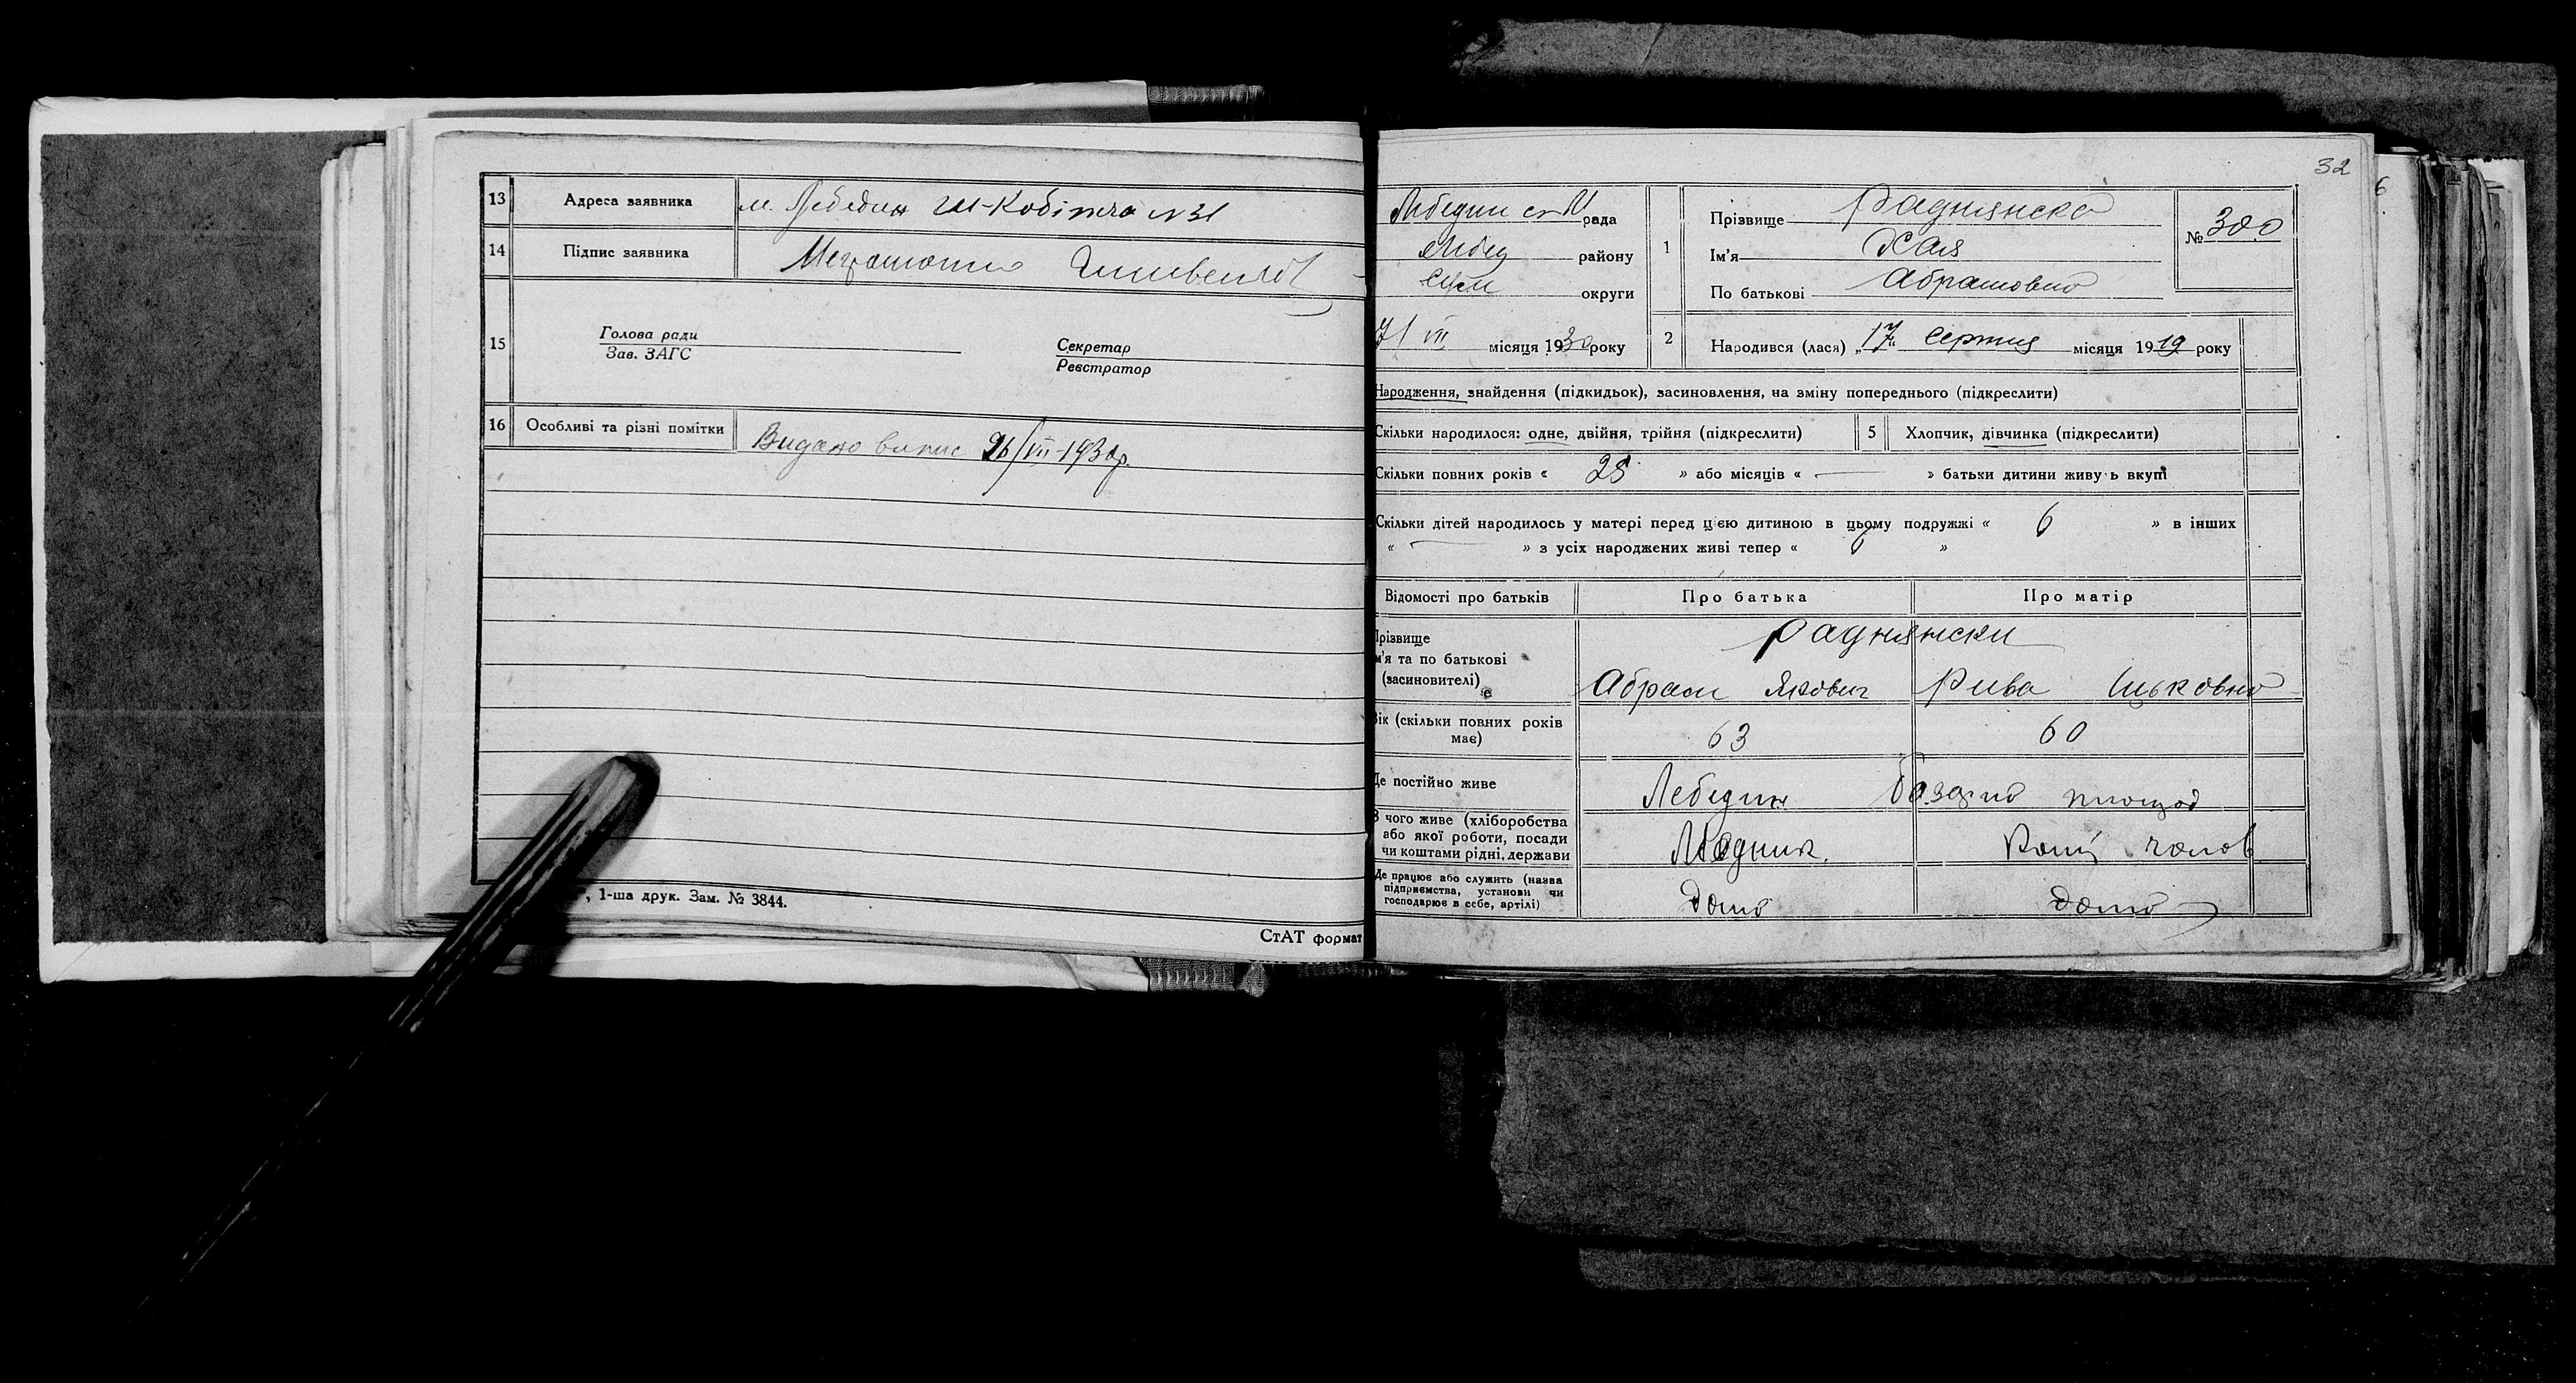 13 Адреса заявника м. Лебедин
14 Підпис заявника
15 Голова ради
Зав. ЗАГС
Секретар
Реєстратор
16 Особливі та різні помітки Видано випис 26/VII-1930р.
, 1-ша друк. Зам. № 3844.
СтАТ формат
32
6
Лебедин рада
Лебед району
Сум округи
21 VII місяця 1930 року
1 Прізвище Раднянска
Ім'я Хая
По батькові Абрамовна
№ 300
2 Народився (лася) „17“ серпня місяця 1919 року
Народження, знайдення (підкидьок), засиновлення, на зміну попереднього (підкреслити)
Скільки народилося: одне, двійня, трійня (підкреслити) 5 Хлопчик, дівчинка (підкреслити)
Скільки повних років « 25 » або місяців « — » батьки дитини живуь вкупі
Скільки дітей народилось у матері перед цією дитиною в цьому подружжі « 6 » в інших
« — » з усіх народжених живі тепер « 6 »
Відомості про батьків Про батька Про матір
Прізвище Раднянски
м'я та по батькові
(засиновителі) Абрам Якович Рива Ицьковна
Вік (скільки повних років
має) 63 60
Де постійно живе Лебедин Базарна площад
З чого живе (хліборобства
або якої роботи, посади
чи коштами рідні, держави Модник. Кошт. чолов
Де працює або служить (назва
підприємства, установи чи
господарює в себе, артілі) дома дома